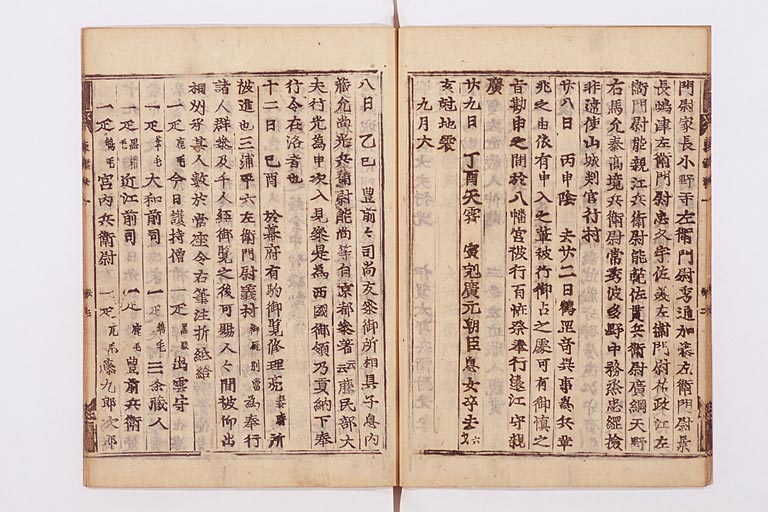 門尉家長小野寺左衛門尉秀通加藤左衛門尉景
長嶋津左衛門尉忠久宇佐美左衛門尉祐政江左
衛門尉能親江兵衛尉能範佐貫兵衛尉廣綱天野
右馬允泰高境兵衛尉常秀波多野中務丞忠經撿
非違使山城判官行村
廿八日 丙申陰 去廿二日鶴罡奇異事為兵革
兆之由依有申入之輩被行御占之處可有御慎之
旨勘申之間於八幡宮被行百恠祭奉行遠江守親
廣
廿九日 丁酉天霽 寅尅廣元朝臣息女卒去
亥尅地震
九月大
八日乙巳 豊前々司尚友參御所相具子息内
藏允尚光兵衛尉能尚等自京都參着云々藤民部大
夫行光為申次入見參是為西國御領乃貢納下奉
行今在洛者也
十二日己酉 於幕府有駒御覽修理亮泰時所
被進也三浦平六左衛門尉義村御厩別當為奉行
諸人群參及千人經御覽之後可賜人々間被仰出
相州矛其人數於當座令右筆注折紙給
一疋鹿毛 今日護持僧 一疋黒駮 出雲守
一疋葦毛 大和前司 一疋 毛 三條藏人
一疋黒糟毛 近江前司 一疋鹿毛 豊前兵衛尉
一疋鵇毛 宮内兵衛尉 一疋瓦毛 藤九郎次郎